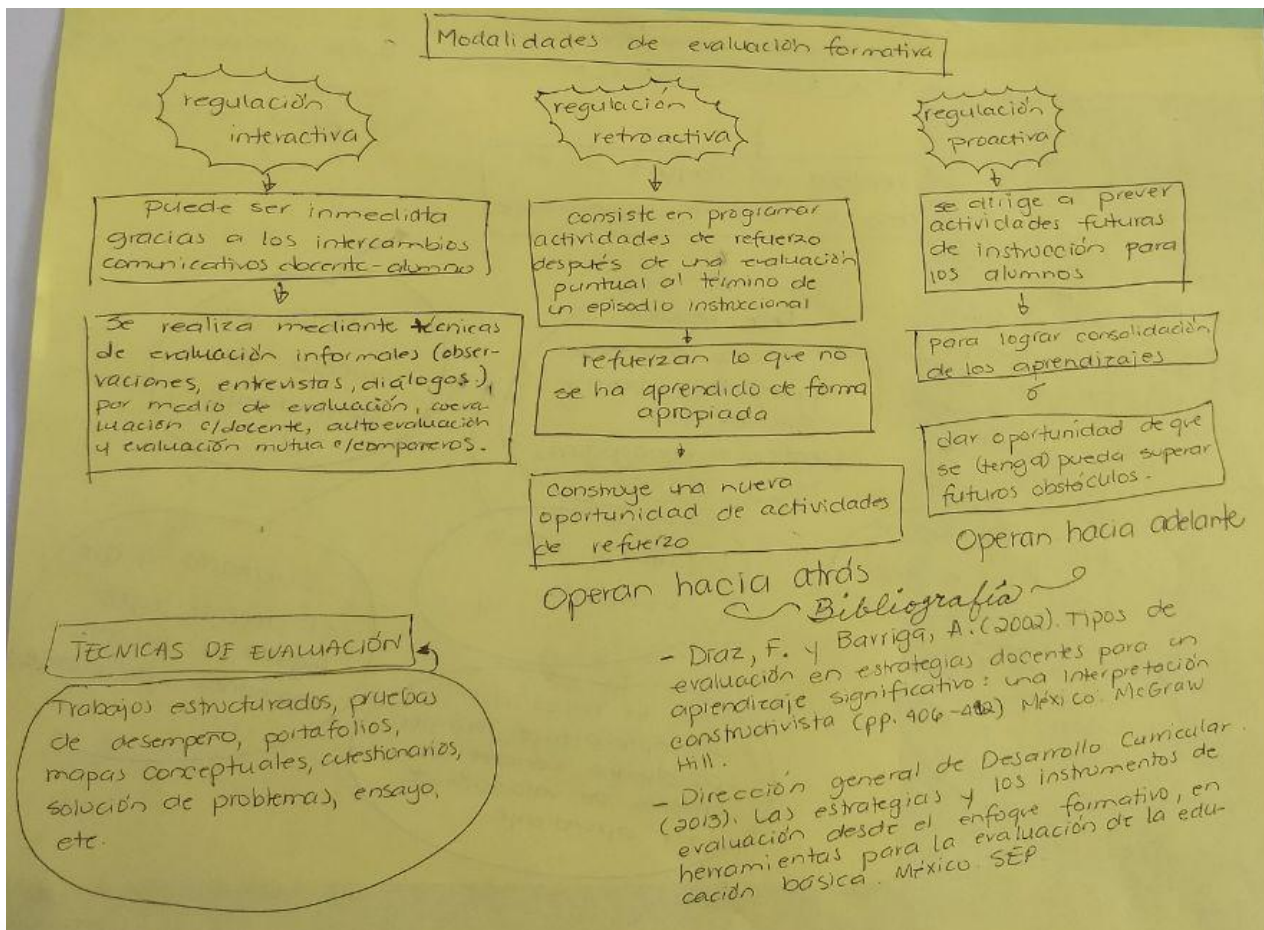 Modalidades de evaluación formativa
regulación
interactiva
puede ser inmediata
gracias a los intercambios
comunicativos docente-alumno
Se realiza mediante técnicas
de evaluación informales (obser-
vaciones, entrevistas, diálogos.),
por medio de evaluación, coeva-
luación c/docente, autoevaluación
y evaluación mutua c/compañeros.
regulación
retroactiva
consiste en programar
actividades de refuerzo
después de una evaluación
puntual al término de
un episodio instruccional
refuerzan lo que no
se ha aprendido de forma
apropiada
Construye una nueva
oportunidad de actividades
de refuerzo
Operan hacia atrás
regulación
proactiva
se dirige a prever
actividades futuras
de instrucción para
los alumnos
para lograr consolidación
de los aprendizajes
ó
dar oportunidad de que
se (tenga) pueda superar
futuros obstáculos.
Operan hacia adelante
TECNICAS DE EVALUACIÓN
Trabajos estructurados, pruebas
de desempeño, portafolios,
mapas conceptuales, cuestionarios,
solución de problemas, ensayo,
etc.
Bibliografía
- Díaz, F. y Barriga, A. (2002). Tipos de
evaluación en estrategias docentes para un
aprendizaje significativo: una interpretación
constructivista (pp. 406-412) México. McGraw
Hill.
- Dirección general de Desarrollo Curricular.
(2013). Las estrategias y los instrumentos de
evaluación desde el enfoque formativo, en
herramientas para la evaluación de la edu-
cación básica. México. SEP